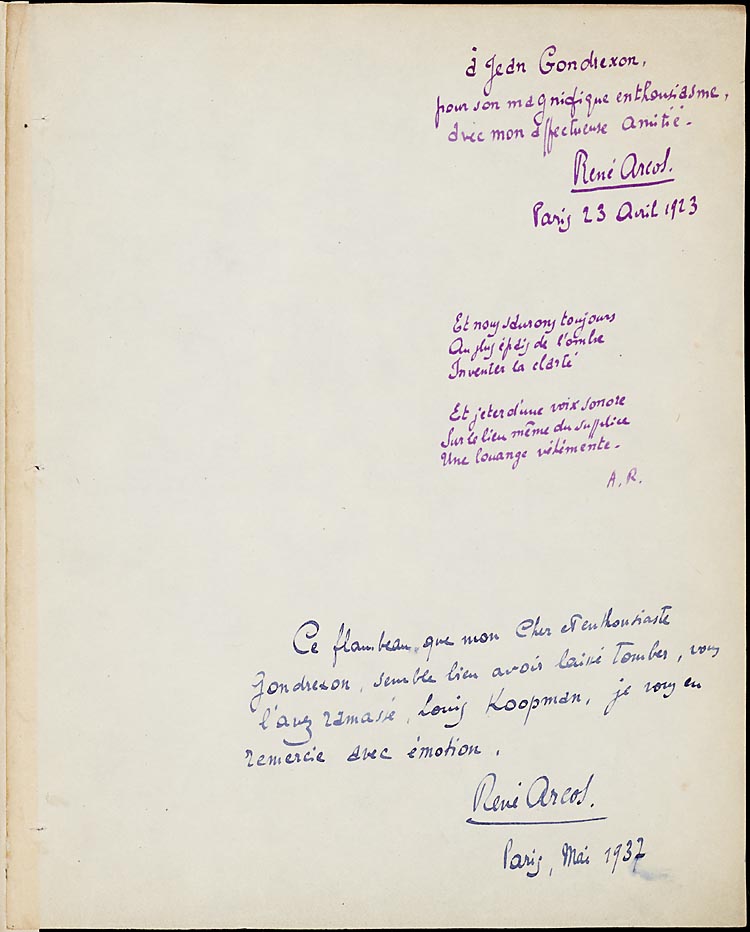 à Jean Gondrexon,
pour son magnifique enthousiasme,
avec mon affectueuse amitié.
René Arcos.
Paris 23 Avril 1923
Et nous saurons toujours
Au plus épais de l'ombre
Inventer la clarté
Et jeter d'une voix sonore
Sur le lieu même du supplice
Une louange véhémente.
A. R.
Ce flambeau, que mon Cher et enthousiaste
Gondrexon, semble bien avoir laissé tomber, vous
l'avez ramassé, Louis Koopman, je vous en
remercie avec émotion.
René Arcos.
Paris, Mai 1937